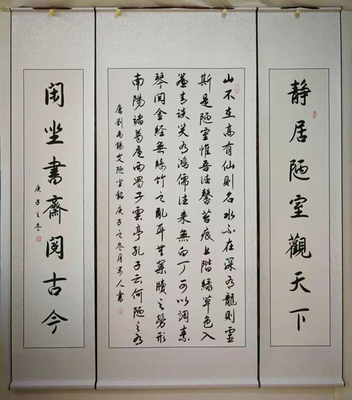 静居陋室觀天下
山不在高有仙則名水不在深有龍則靈
斯是陋室惟吾德馨苔痕上階綠草色入
簾青談笑有鴻儒往來無白丁可以調素
琴閱金經無絲竹之亂耳無案牘之勞形
南陽諸葛廬西蜀子雲亭孔子云何陋之有
唐劉禹錫文陋室銘庚子之冬月人書
閑坐書齋閱古今
庚子之冬